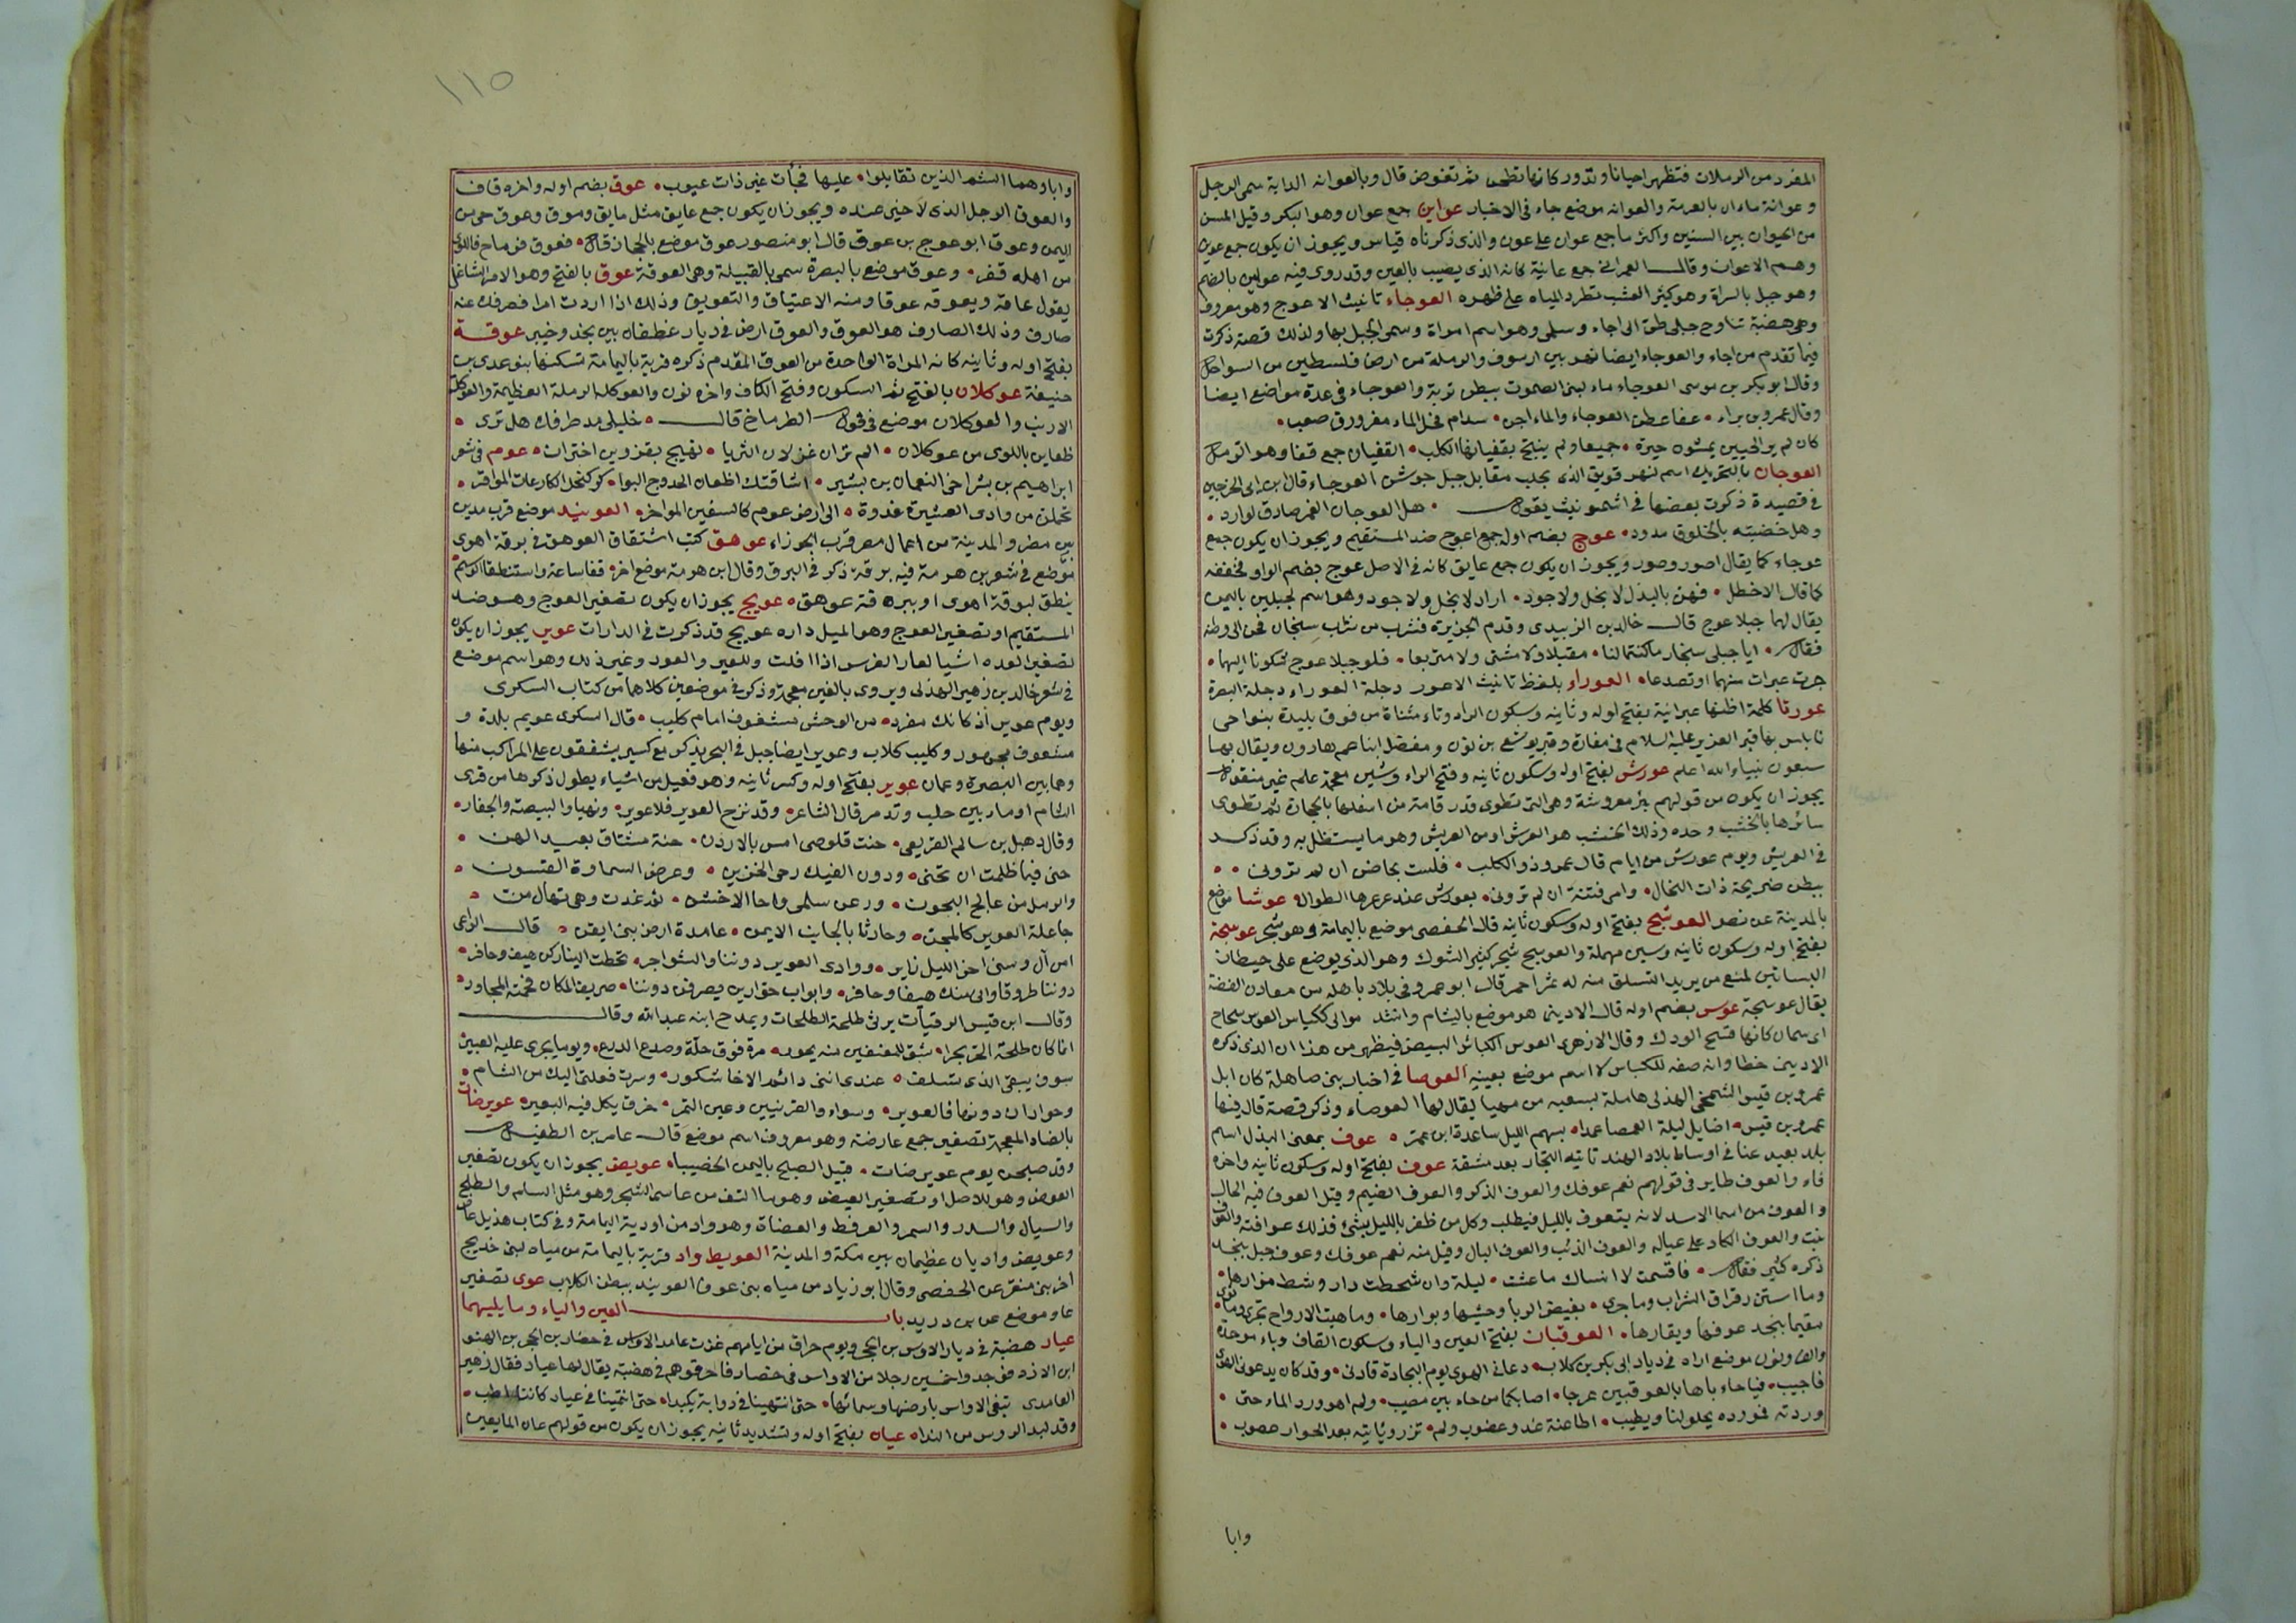 المفرد من الرملات فتظهر احيانا وتدور كانها تطحن ثم تغوص قال وبالعوانه الدابة سمى الرجل
وعوانة ماءان بالعرمة والعوانه موضع جاء فى الاخبار عواين جمع عوان وهو البكر وقيل المسن
من الحيوان بين السنين واكثر ما جمع عوان على عون والذى ذكرناه قياس ويجوز ان يكون جمع عون
وهم الاعوان وقال العمرانى جمع عانية كانه الذى يصيب بالعين وقد روى فيه عواين بالضم
وهو جبل بالسراة وهو كثير العشب تطرد المياه على ظهره العوجاء تانيث الاعوج وهو معروف
وهى هضبة تناوح جبلى طى الى اجاء وسلمى وهو اسم امراة وسمى الجبل بها ولذلك قصة ذكرت
فيما تقدم من اجاء والعوجاء ايضا نهر بين ارسوف والرملة من ارض فلسطين من السواحل
وقال ابو بكر بن موسى العوجاء ماء لبنى الصموت ببطن تربة والعوجاء فى عدة مواضع ايضا
وقال عمرو بن براء عفا عطن العوجاء والماء اجن سدام فحل الماء مغرورق صعب
كان لم ير الحيين يمشون حيرة جميعا ولم ينبح بقفيانها الكلب القفيان جمع قفا وهو الرمل
العوجان بالتحريك اسم لنهر قويق الذى بحلب مقابل جبل جوشن العوجاء قال ابن ابى الخرجين
فى قصيدة ذكرت بعضها فى اشمونيث يقول هل العوجان الغمر صادق لوارد
وهل خضبته بالخلوق مدود عوج بضم اوله جمع اعوج ضد المستقيم ويجوز ان يكون جمع
عوجاء كما يقال اصور وصور ويجوز ان يكون جمع عايق كانه فى الاصل عوج بضم الواو فخففه
كما قال الاخطل فهن بالبذل لا بخل ولا جود اراد لا بخل ولا جود وهو اسم لجبلين باليمن
يقال لهما جبلا عوج قال خالد بن الزبيدى وقدم الجزيرة فشرب من شراب سنجان فحن الى وطنه
فقال ايا جبلى سنجار ما كنتما لنا مقيلا ولا مشتى ولا متربعا فلو جبلا عوج شكونا اليهما
جرت عبرات منهما او تصدعا العوراء بلفظ تانيث الاعور دجلة العوراء دجلة البصرة
عورتا كلمة اظنها عبرانية بفتح اوله وثانيه وسكون الراء وتاء مثناة من فوق بليدة بنواحى
نابلس بها قبر العزير عليه السلام فى مغارة وقبر يوشع بن نون ومفضل ابنا عم هارون ويقال بها
سبعون نبيا والله اعلم عورش بفتح اوله وسكون ثانيه وفتح الراء وشين معجمة علم غير منقول
يجوز ان يكون من قولهم بئر معروشة وهى التى تطوى قدر قامة من اسفلها بالحجارة ثم تطوى
سائرها بالخشب وحده وذلك الخشب هو العرش او من العريش وهو ما يستظل به وقد ذكر
فى العريش ويوم عورش من ايام قال عمرو ذو الكلب فلست بحاضن ان لم تروني
ببطن ضريحة ذات النخال وامى فتنة ان لم تروني بعورش عند عرعرها الطوال عوشا موضع
بالمدينة عن نصر العوشج بفتح اوله وسكون ثانيه قال الحفصى موضع باليمامة وهو شجر عوسجة
بفتح اوله وسكون ثانيه وسين مهملة والعوسج شجر كثير الشوك وهو الذى يوضع على حيطان
البساتين لمنع من يريد التسلق منه له ثمر احمر قال ابو عمرو فى بلاد باهله من معادن الفضة
يقال عوسجة عوس بضم اوله قال الاديبى هو موضع بالشام وانشد موالى ككباس العوس سحاح
اى سمان كانها تسح الودك وقال الازهرى العوس الكباش البيض فيظهر من هذا ان الذى ذكره
الاديبى خطا وانه صفه للكباش لا اسم موضع بعينه العوصا فى اخبار بنى صاهلة كان ابل
عمرو بن قيس الشمخى الهذلى هاملة بسعيه من مهيا يقال لها العوصاء وذكر قصة قال فيها
عمرو بن قيس اضابل ليلة العصاعدا بسهم الليل ساعدة ابن عمرو عوف بمعنى البذل اسم
بلد بعيد عنا فى اوساط بلاد الهند تاتيه التجار بعد مشقة عوف بفتح اوله وسكون ثانيه واخره
فاء والعوف طاير فى قولهم نعم عوفك والعوف الذكر والعوف الضيم وقيل العوف فيه الحال
والعوف من اسما الاسد لانه يتعوف بالليل فيطلب وكل من ظفر بالليل بشئ فذلك عوافته والعوف
نبت والعوف الكاد على عياله والعوف الذئب والعوف البال وقيل منه نعم عوفك وعوف جبل بنجد
ذكره كثير فقال فاقسمت لا انساك ما عشت ليلة وان شحطت دار وشط مزارها
وما استن رقراق السراب وما جرى ببيض الربا وحشيها وبوارها وما هبت الارواح تجرى وما ثوى
مقيما بنجد عوفها وبقارها العوقبان بفتح العين والياء وسكون القاف وباء موحدة
والف ونون موضع اراه فى ديار ابى بكر بن كلاب دعانى الهوى يوم البجادة قادنى وقد كان يدعونى الهوى
فاجيب فيا حاء باها بالعوقبين عرجا اصابكما من حاء بين مصيب ولم اهو ورد الماء حتى
وردته فمورده يحلو لنا ويطيب اطاعنة غدو عضوب ولم تزر وبانيه بعد الحوار عصوب
وابا
١١٥
وابا وهما الشم الذين تقابلوا عليها فجأت غير ذات عيوب عوق بضم اوله واخره قاف
والعوق الرجل الذى لا خير عنده ويجوز ان يكون جمع عايق مثل مايق وموق وعوق حى من
اليمن وعوق ابو عوج بن عوق قال ابو منصور عوق موضع بالحجاز قال فعوق فرماح فاللوى
من اهله قفر وعوق موضع بالبصرة سمى بالقبيلة وهى العوقة عوق بالفتح وهو الامر الشاغل
يقول عاقه ويعوقه عوقا ومنه الاعتياق والتعويق وذلك اذا اردت امرا فصرفك عنه
صارف وذلك الصارف هو العوق والعوق ارض فى ديار غطفان بين نجد وخيبر عوقة
بفتح اوله وثانيه كانه المراة الواحدة من العوق المقدم ذكره قرية باليمامة تسكنها بنو عدى بن
حنيفة عوكلان بالفتح ثم السكون وفتح الكاف واخره نون والعوكله الرملة العظيمة والعوكلة
الارنب والعوكلان موضع فى قول الطرماخ قال خليلى مد طرفك هل ترى
ظعاين باللوى من عوكلان الم تران غزلان الثريا تهيج بقزوين اختراى عوم فى شعر
ابراهيم بن بشر اخى النعمان بن بشير اشاقتك اظعان الحدوج البواكر كنخل الكارعات المواقر
تحملن من وادى العشيرة غدوة الى ارض عوم كالسفين المواخر العونيد موضع قرب مدين
بين مصر والمدينة من اعمال مصر قرب الجوزاء عوهق كتب اشتقاق العوهق فى برقة اهوى
موضع فى شعر بن هرمة فيه برقة ذكر فى البرق وقال ابن هرمة موضع اخر قفا ساعة واستنطقا الرسم
ينطق لبرقة اهوى او ببرقة عوهق عويج يجوز ان يكون تصغير العوج وهو ضد
المستقيم او تصغير العوج وهو الميل داره عويج قد ذكرت فى الدارات عوير يجوز ان يكون
تصغير العده اشيا لعار الفرس اذا افلت وللعير والعود وغير ذلك وهو اسم موضع
فى شعر خالد بن زهير الهذلى ويروى بالغين معجمة وذكر فى موضعين كلاهما من كتاب السكرى
ويوم عوير اذ كانك مفرد من الوحش مشغوف امام كليب قال السكرى عويم بلدة و
مشغوف مجهود وكليب كلاب وعوير ايضا جبل فى البحر يذكر مع كسير يشفقون على المراكب منها
وهما بين البصرة وعمان عوير بفتح اوله وكسر ثانيه وهو فعيل من اشياء يطول ذكرها من قرى
الشام او ما بين حلب وتدمر قال الشاعر وقد نزح العوير فلا عوير ونهيا والبييضة والجفار
وقال دهبل بن سالم القريعى حنت قلوصى امس بالاردن حنة مشتاق بعيد الهن
حنى فيما ظلمت ان تحنى ودون الفيك رحى الخزين وعرض السماوة القسون
والرمل من عالج البحون ورعن سلمى واجا الاخشن ثم غدت وهى تهال منى
جاعلة العوير كالمجن وحارثا بالجانب الايمن عامدة ارض بنى ايفن قال الراعى
امن آل وسنى اخر الليل زاير ووادى العوير دوننا والشواجر تخطت الينا ركن هيف وحافر
دوننا طروقا وانى منك هيفا وحافر وابواب حوارين يصرفن دوننا صريف المكان فحمته المحاور
وقال ابن قيس الرقيات يرثى طلحة الطلحات ويمدح ابنه عبد الله وقال
انما كان طلحة الخير بحرا شق للمعتفين منه بحور مرة فوق حلة وصدع الدرع ويوما يجرى عليه العبير
سوف يبقى الذى تسلف عندى اننى دائم الاخا شكور وسرت فعلى اليك من الشام
وحوران دونها فالعوير وسواء والقرنيين وعين التمر خرق يكل فيه البعير عويرضات
بالضاد المعجمة تصغير جمع عارضة وهو معروف اسم موضع قال عامر بن الطفيل
وقد صبحن يوم عويرضات قبيل الصبح باليمن الخصيبا عويص يجوز ان يكون تصغير
العوص وهو للاصل او تصغير العيص وهو ما التف من عاسى الشجر وهو مثل السلم والطلح
والسيال والسدر والسمر والعرفط والعضاة وهو واد من اودية اليمامة وفى كتاب هذيل عاص
وعويص واديان عظيمان بين مكة والمدينة العويط واد قرية باليمامة من مياه لبنى خديج
اخر بنى منقر عن الحفصى وقال ابو زياد من مياه بنى عوف العويند ببطن الكلاب عوى تصغير
عاو موضع عن بن دريد باب العين والياء وما يليهما
عيار هضبة فى ديار الاوس بن الحجر ويوم حراق من ايامهم غزت غامد الاواس فى حضار بن الحجر بن الهنو
ابن الازد فوجدوا خمسين رجلا من الاواس فى حصار فاحرقوهم فى هضبة يقال لها عيار فقال زهير
الغامدى تبغى الاواس بارضها وسمائها حتى انتهينا فى دوابة يكبدا حتى انتمينا فى عيار كاننا اطب
وقد لبد الروس من النداه عيان بفتح اوله وتشديد ثانيه يجوز ان يكون من قولهم عان الما يعين